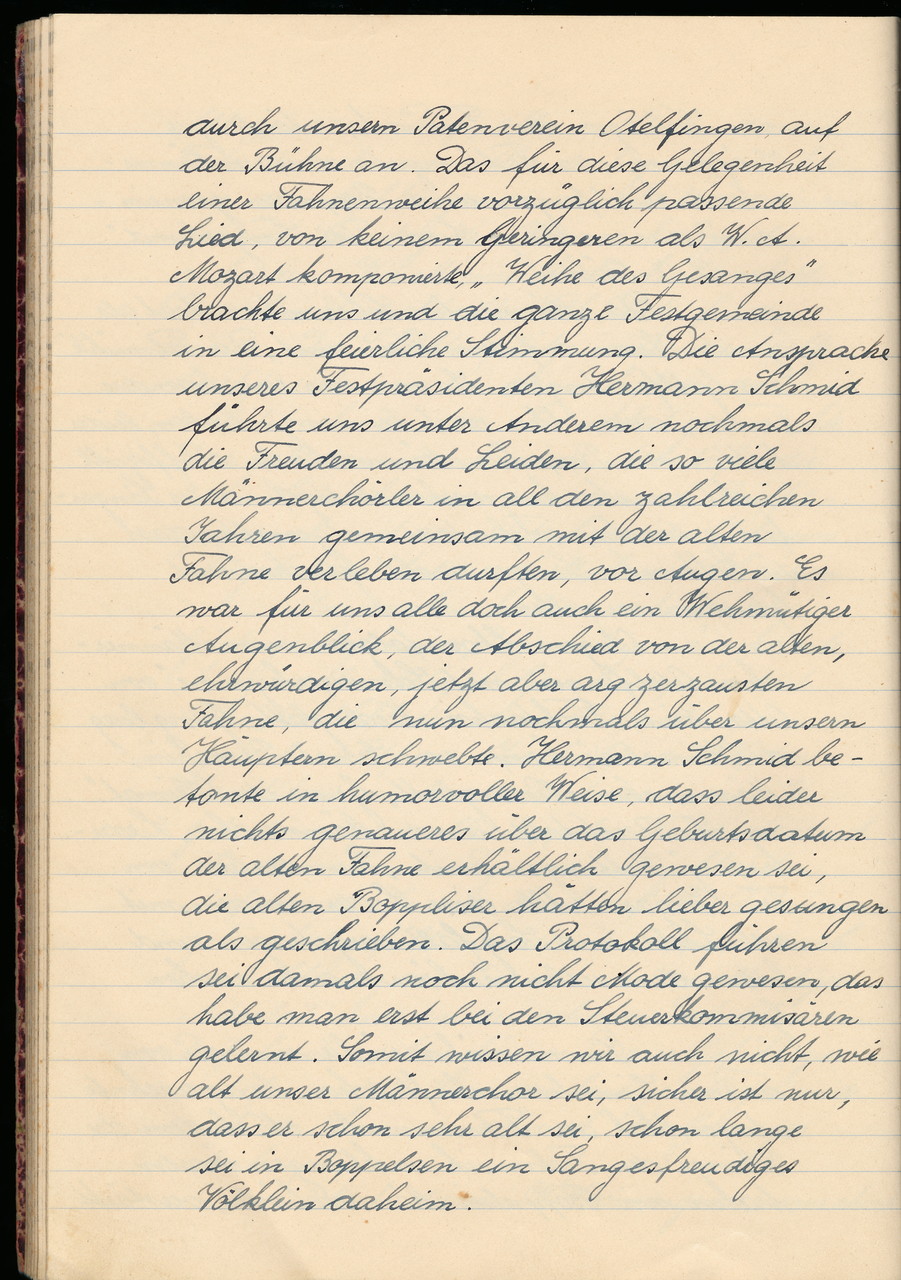 durch unsern Patenverein Otelfingen, auf
der Bühne an. Das für diese Gelegenheit
einer Fahnenweihe vorzüglich passende
Lied, von keinem Geringeren als W. A.
Mozart komponierte, „Weihe des Gesanges"
brachte uns und die ganze Festgemeinde
in eine feierliche Stimmung. Die Ansprache
unseres Festpräsidenten Hermann Schmid
führte uns unter Anderem nochmals
die Freuden und Leiden, die so viele
Männerchörler in all den zahlreichen
Jahren gemeinsam mit der alten
Fahne verleben durften, vor Augen. Es
war für uns alle doch auch ein Wehmütiger
Augenblick, der Abschied von der alten,
ehrwürdigen, jetzt aber arg zerzausten
Fahne, die nun nochmals über unsern
Häuptern schwebte. Hermann Schmid be-
tonte in humorvoller Weise, dass leider
nichts genaueres über das Geburtsdatum
der alten Fahne erhältlich gewesen sei,
die alten Boppliser hätten lieber gesungen
als geschrieben. Das Protokoll führen
sei damals noch nicht Mode gewesen, das
habe man erst bei den Steuerkommisären
gelernt. Somit wissen wir auch nicht, wie
alt unser Männerchor sei, sicher ist nur,
dass er schon sehr alt sei, schon lange
sei in Boppelsen ein Sangesfreudiges
Völklein daheim.